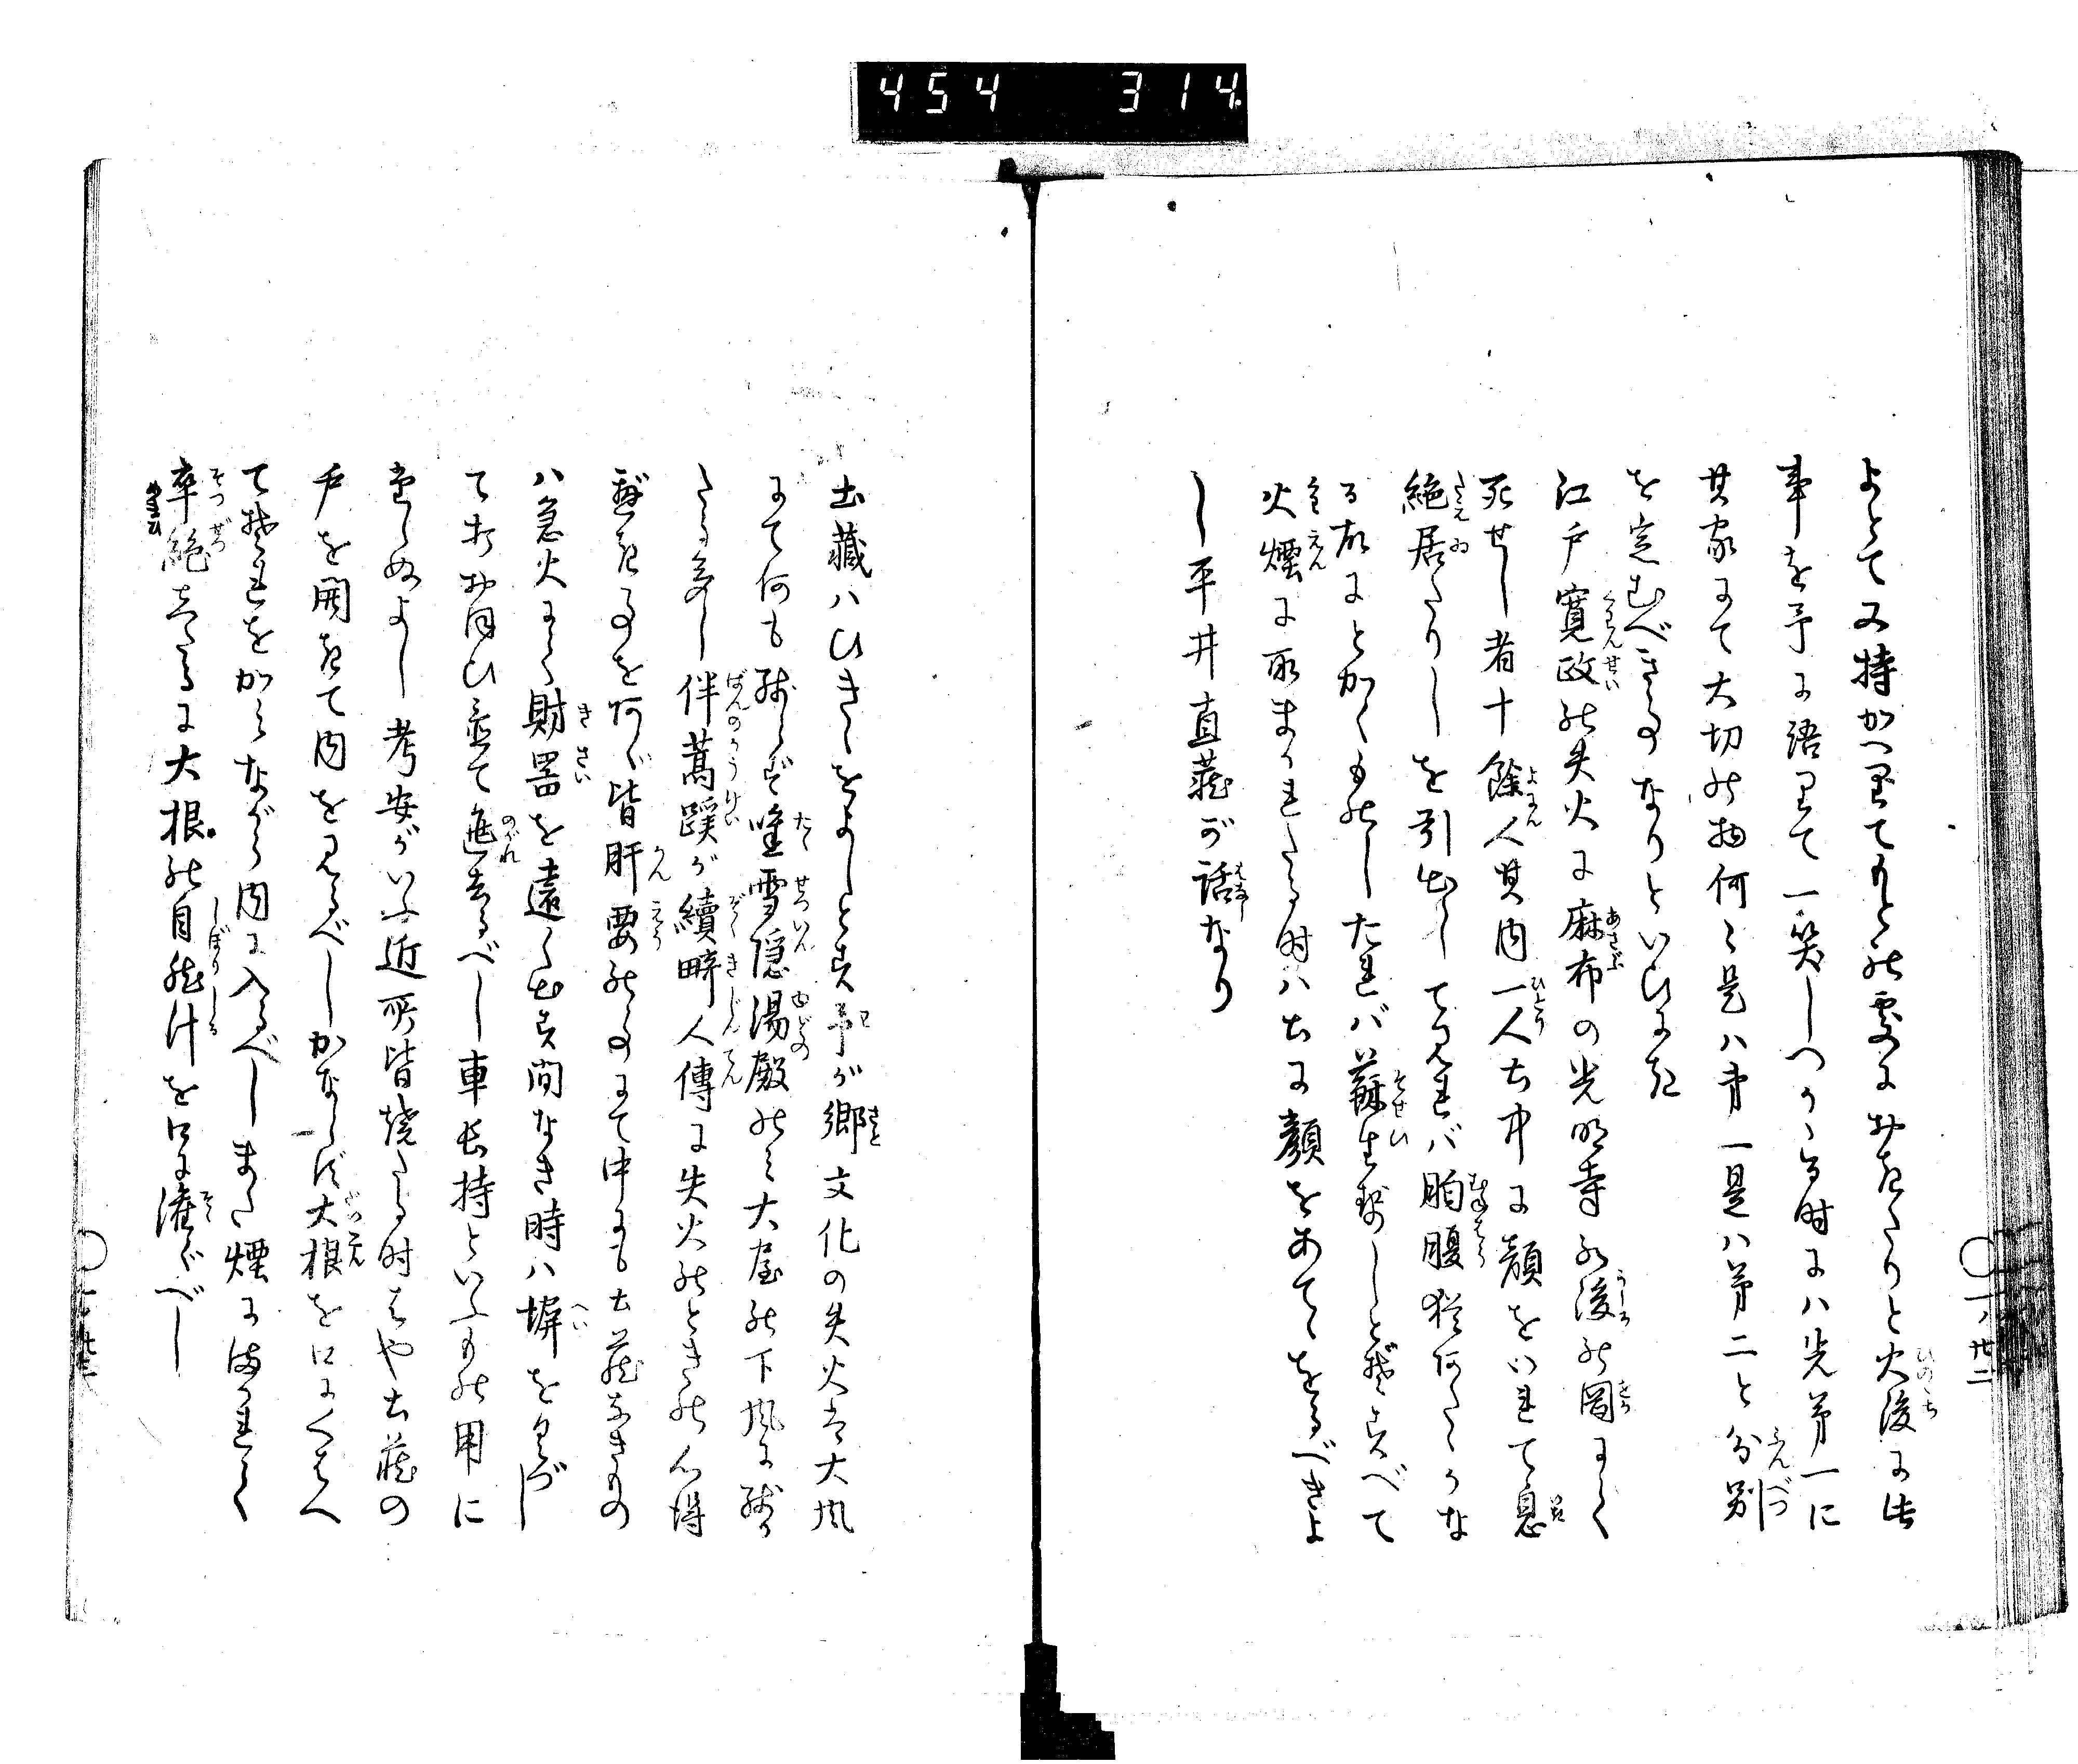 454 314
よとて又持かへりてもとの処におきたりと火後に此
事を予に語りて一笑しつかゝる時にハ先第一に
其家にて大切の物何々是ハ第一是ハ第二と分別
を定むべきことなりといひにき
江戸寛政の失火に麻布の光明寺の後の岡にて
死せし者十餘人其内一人土中に顔をいれて息
絶居たりしを引出して見れバ胸腹猶あたゝかな
る故にとかくものしたれバ蘇生せしとぞすべて
火煙にまかれたる時ハ土に顔をあてゝをるべきよ
し平井直蔵が話なり
土藏ハひきゝをよしとす予が郷文化の失火は大風
にて何も残らず唯雪隠湯殿のミ大屋の下風に残り
たる多し伴蒿蹊が續畸人傳に失火のときの心得
べきことをあぐ皆肝要のことにて中にも土蔵なきもの
ハ急火にて財器を遠く出す間なき時ハ塀をくづし
ておほひ置て迯去るべし車長持といふもの用に
たゝぬよし考安がいふ近所皆焼たる時はや土蔵の
戸を開きて内を見るべしかならず大根を口にくはへ
てそれをかミながら内に入るべしまた煙にまかれて
卒絶したるに大根の自然汁を口に濯ぐべし
一ノ廿二